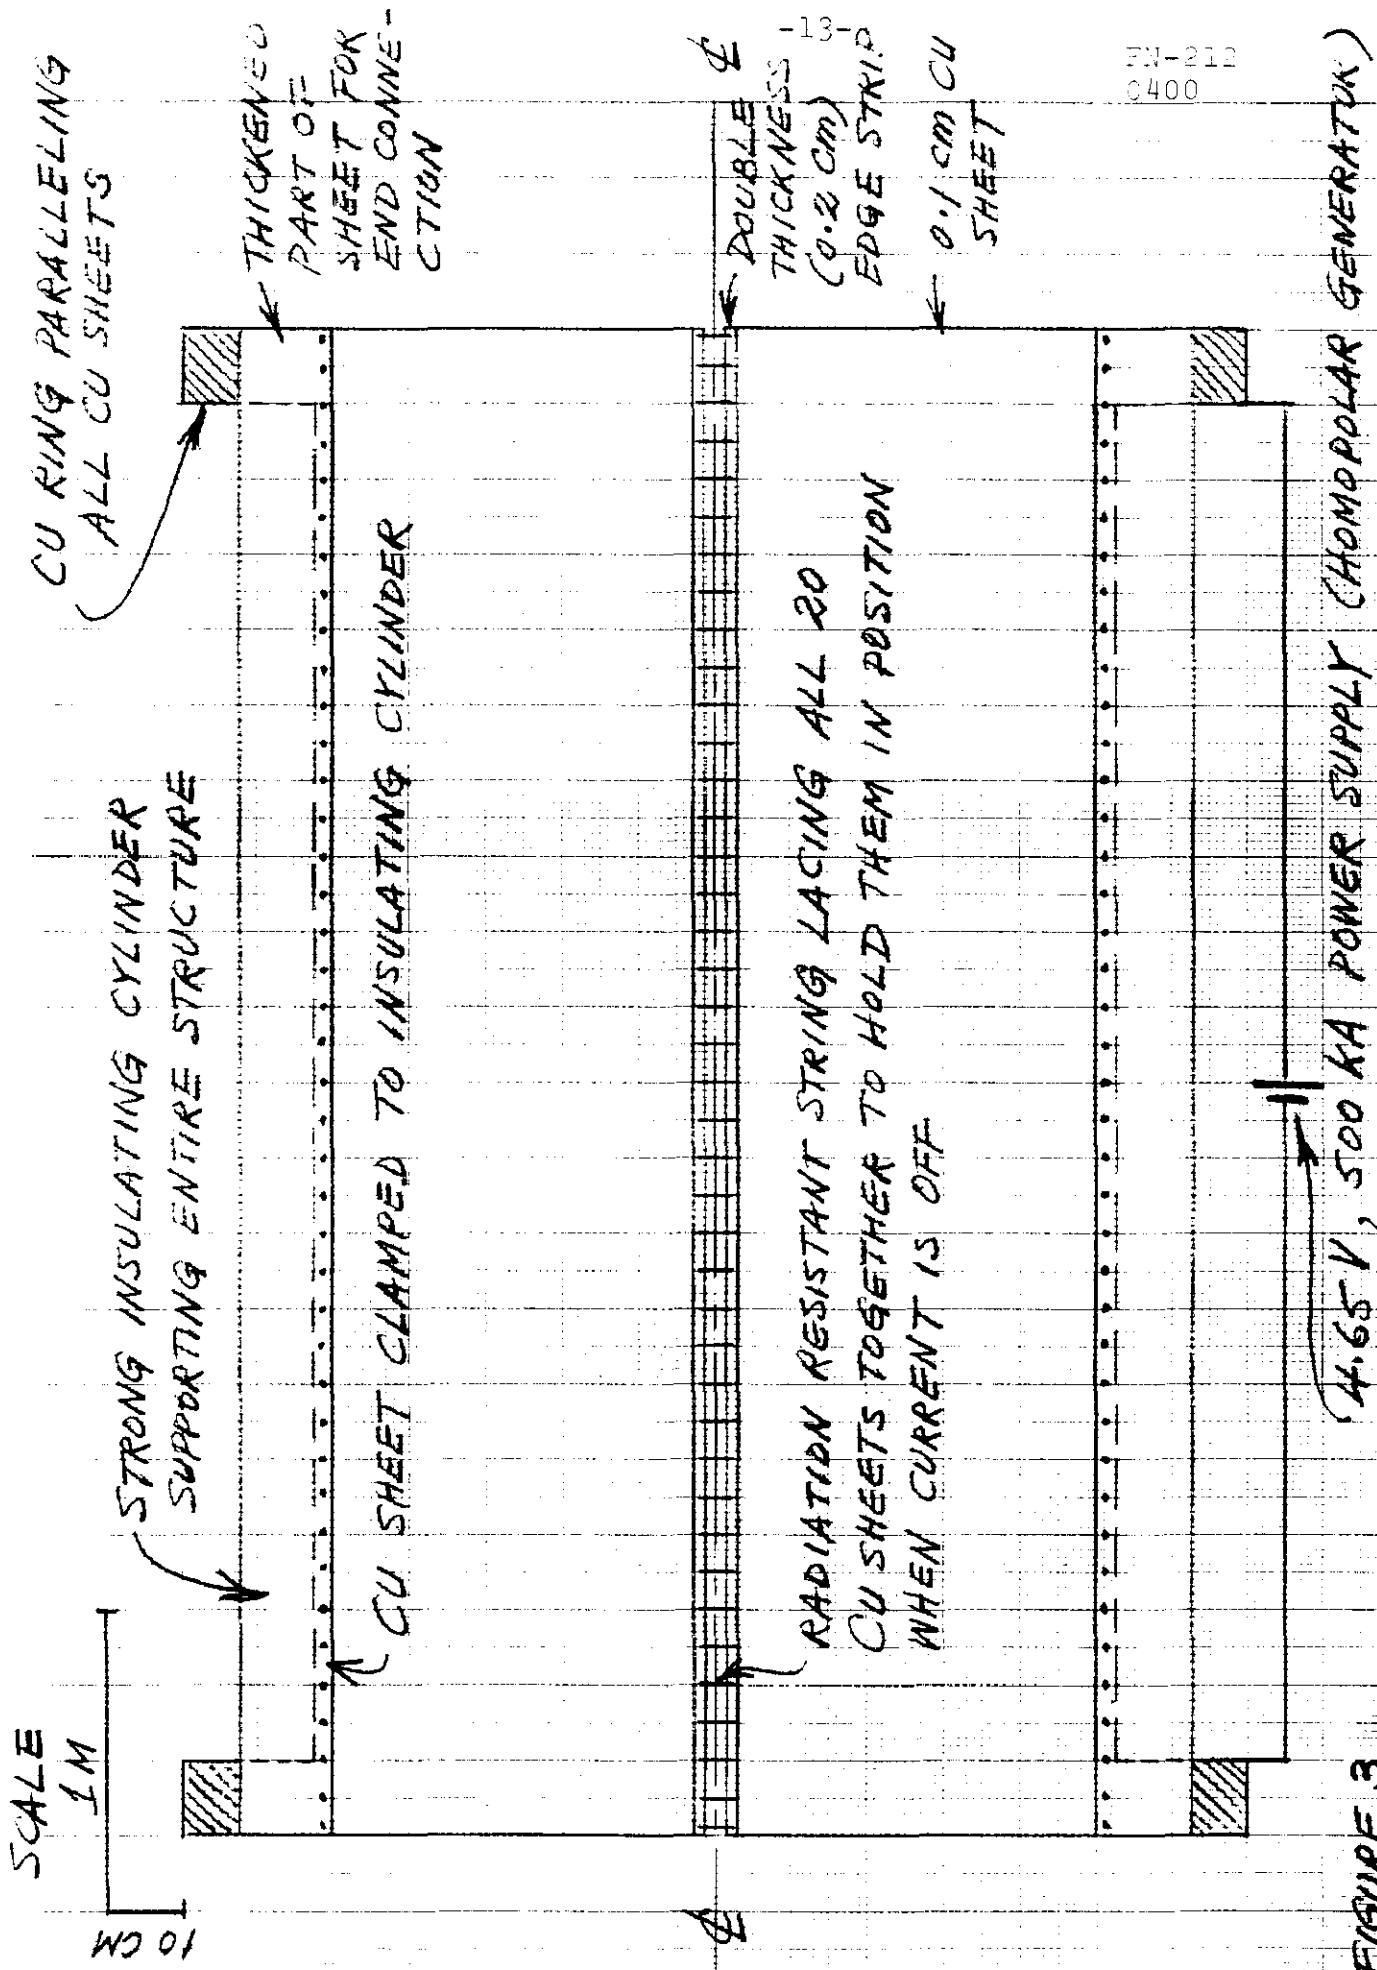 -13-
FN-212
0400
SCALE
1 M
10 CM
STRONG INSULATING CYLINDER
SUPPORTING ENTIRE STRUCTURE
CU RING PARALLELING
ALL CU SHEETS
THICKENED
PART OF
SHEET FOR
END CONNE-
CTION
CU SHEET CLAMPED TO INSULATING CYLINDER
℄
℄
DOUBLE
THICKNESS
(0.2 CM)
EDGE STRIP
0.1 CM CU
SHEET
RADIATION RESISTANT STRING LACING ALL 20
CU SHEETS TOGETHER TO HOLD THEM IN POSITION
WHEN CURRENT IS OFF
4.65 V, 500 KA POWER SUPPLY (HOMOPOLAR GENERATOR)
FIGURE 3